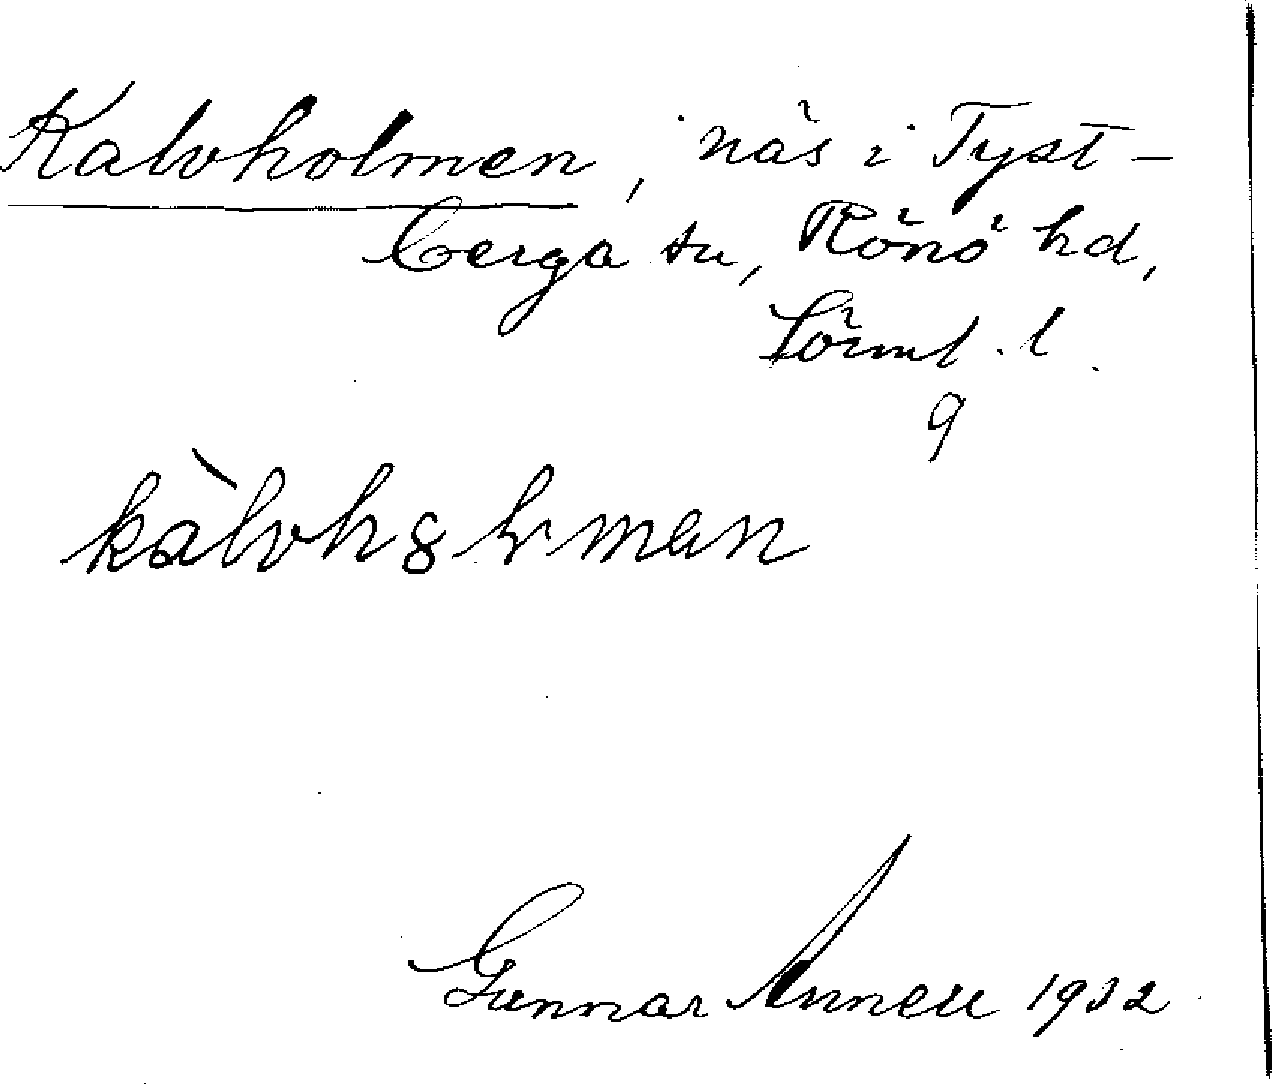 Kalvholmen, näs i Tyst-
berga sn, Rönö hd,
Sörml. l.
9
Gunnar Annell 1932